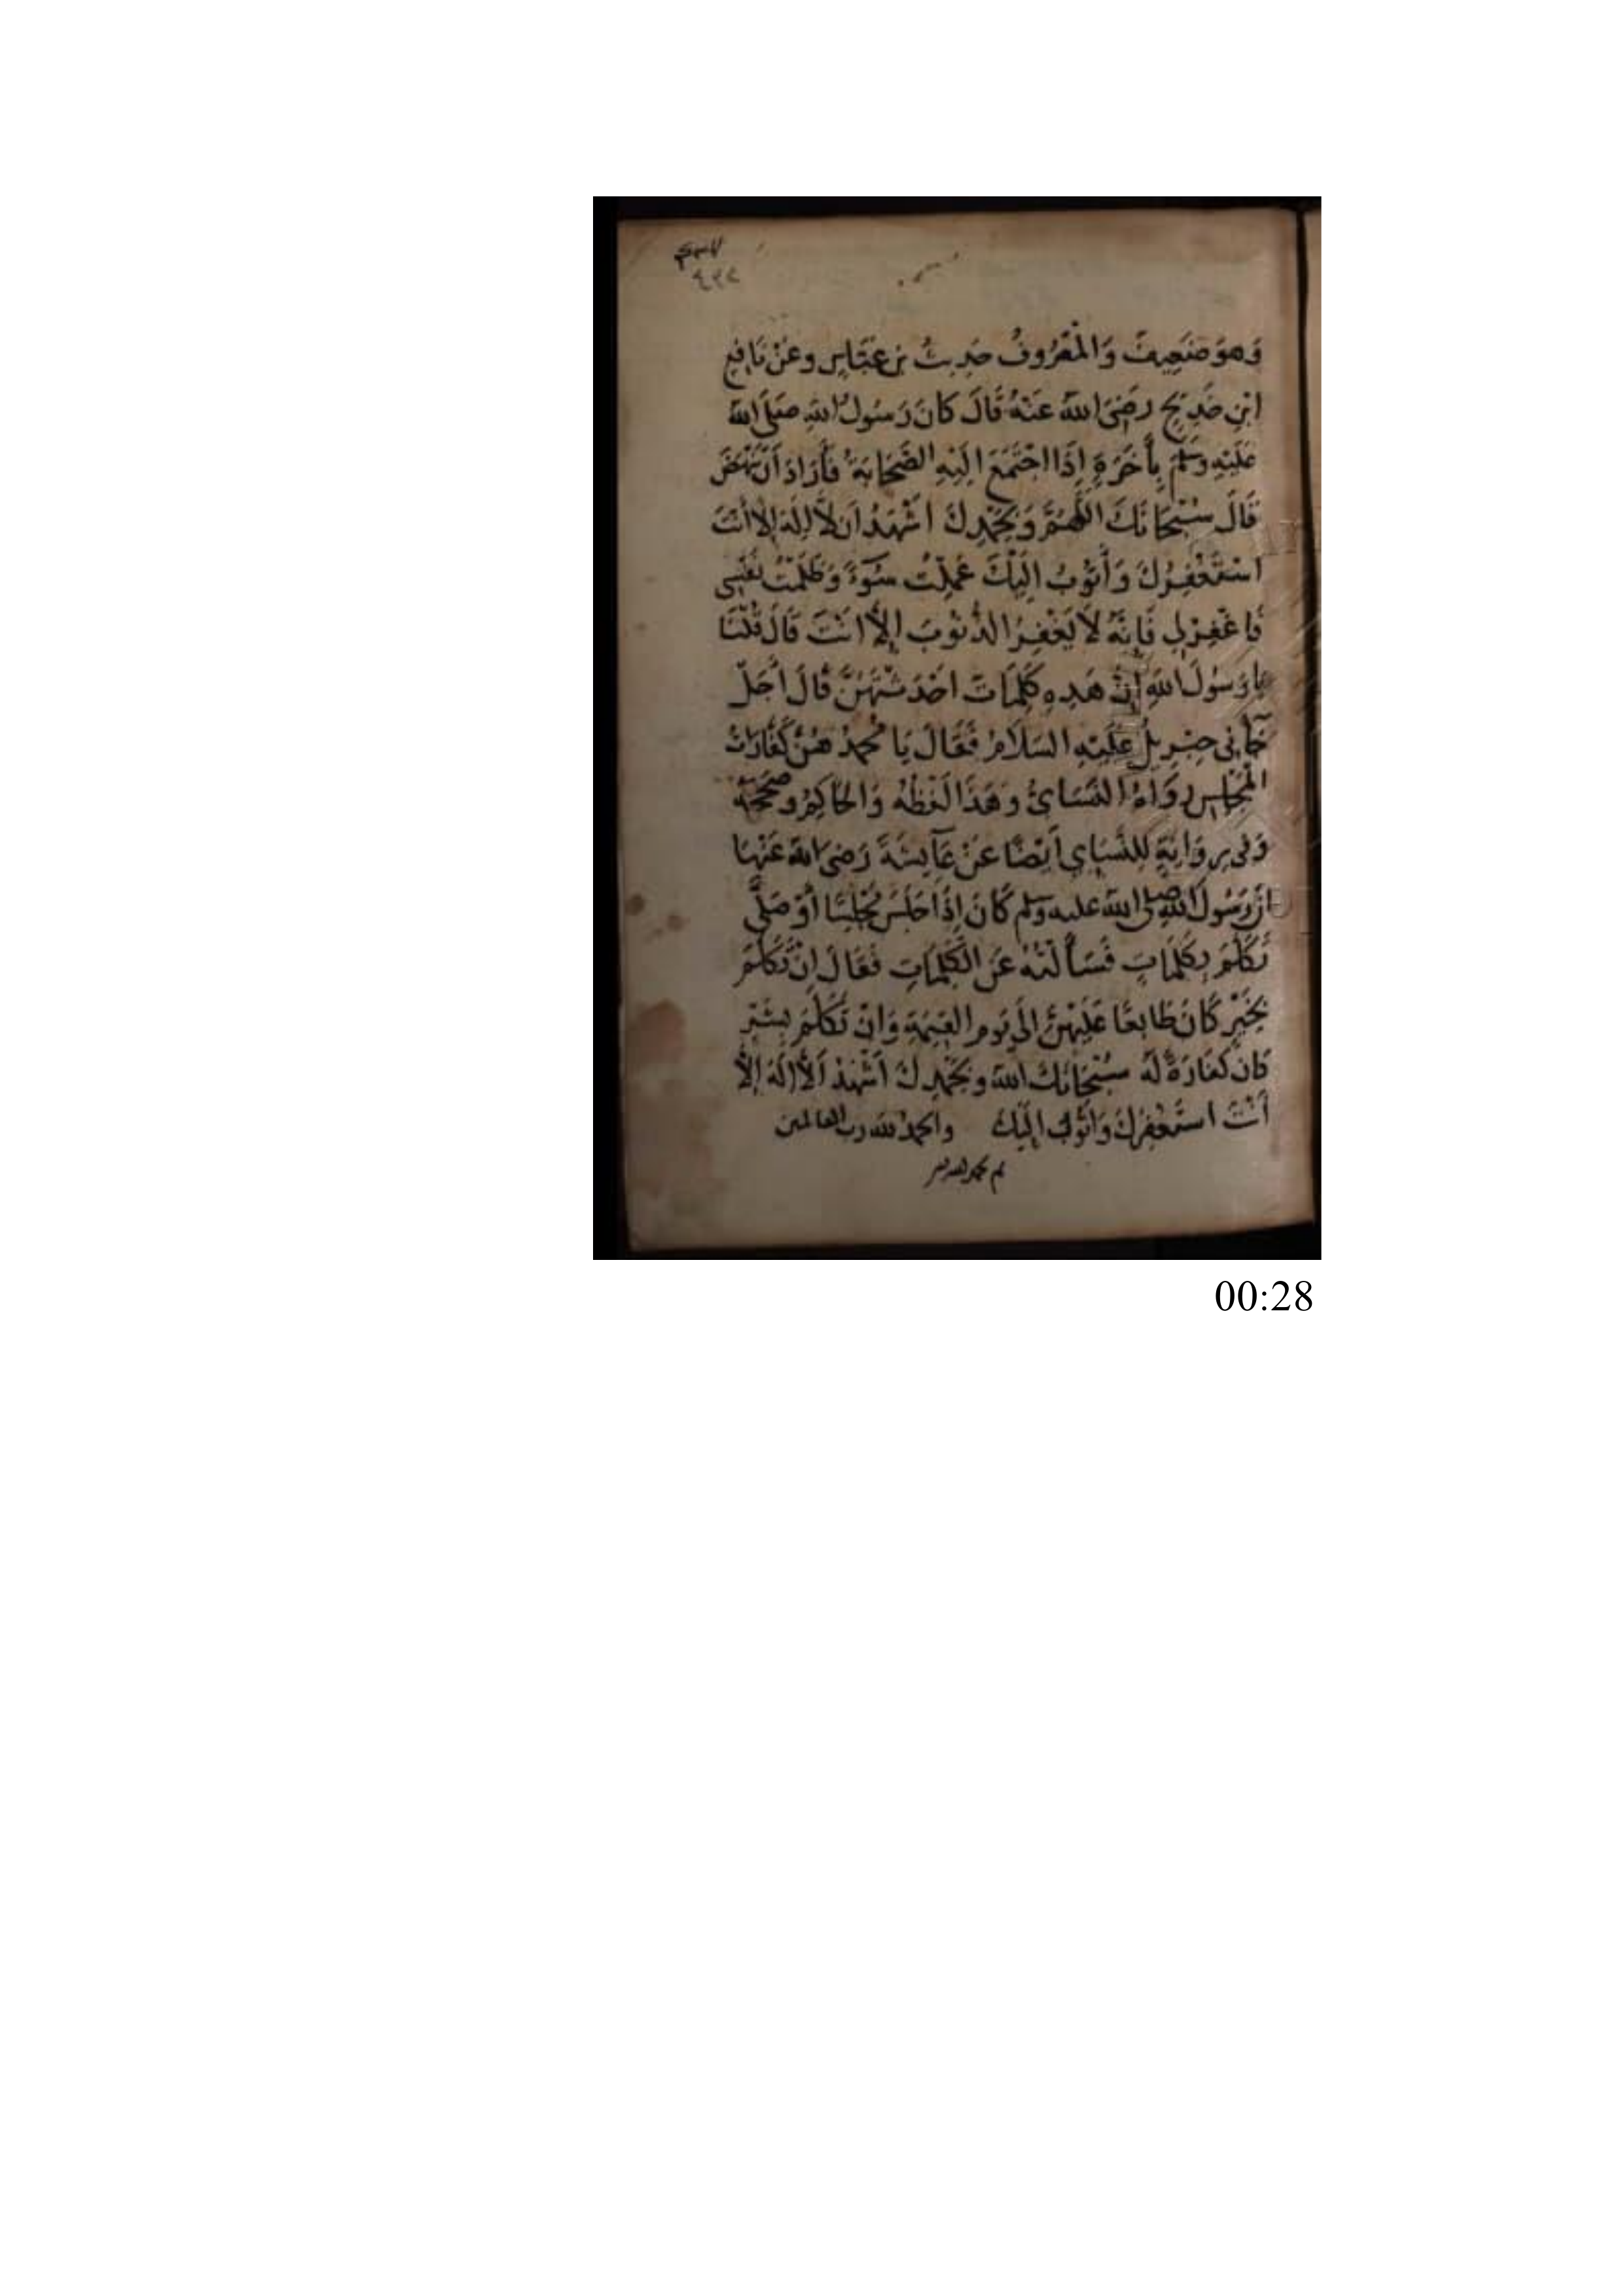 وَهوَ ضَعِيفٌ وَالْمَعْرُوفُ حَدِيثُ بْنِ عَبَّاسٍ وعَنْ نَافِع
ابْنِ خَدِيجٍ رَضِيَ اللهُ عَنْهُ قَالَ كَانَ رَسُولُ اللهِ صَلَّى اللهُ
عَلَيْهِ وسَلَّمَ بِأَخَرَةٍ إِذَا اجْتَمَعَ إِلَيْهِ الصَّحَابَةُ فَأَرَادَ أَنْ يَنْهَضَ
قَالَ سُبْحَانَكَ اللَّهُمَّ وَبِحَمْدِكَ أَشْهَدُ أَن لاَّ إِلَهَ إِلاَّ أَنْتَ
اسْتَغْفِرُكَ وَأَتُوبُ إِلَيْكَ عَمِلْتُ سُوءً وَظَلَمْتُ نَفْسِي
فَاغْفِرْلِي فَإِنَّهُ لاَ يَغْفِرُ الذُّنُوبَ إِلاَّ انْتَ قَالَ قُلْنَا
يا رَسُولَ اللهِ إِنَّ هَذِهِ كَلِمَاتٌ احْدَثْتَهُنَّ قَالَ أَجَلْ
جَآنِي جِبْرِيلُ عَلَيْهِ السَلاَمُ فَقَالَ يَا مُحَمَّدُ هُنَّ كَفَّارَاتُ
الْمَجْلِسِ رَوَاهُ النَّسَائُ وَهَذَا لَفْظُهُ وَالحَاكِمُ وصَحَّحَهُ
وَفِي رِوَايَةٍ لِلنَّسَايِ أَيْضًا عَنْ عَآيِشَةَ رَضِيَ اللهُ عَنْهَا
انَّ رَسُولَ اللهِ صلى اللهُ عليه وسلم كَانَ إِذَا جَلَسَ مَجْلِسًا أَوْ صَلَّى
تَكَلَّمَ بِكَلِمَاتٍ فَسَأَلَتْهُ عَنِ الْكَلِمَاتِ فَقَالَ إِنْ تَكَلَّمَ
بِخَيْرٍ كَانَ طَابِعًا عَلَيْهِنَّ إِلَى يَومِ القِيمَةِ وَانْ تَكَلَّمَ بِشَرٍّ
كَانَ كَفَارَةً لَهُ سُبْحَانَكَ اللهُ وَبِحَمْدِكَ أَشْهَدُ أَلاَّ إِلَهَ إِلاَّ
أَنْتَ اسْتَغْفِرُكَ وَأَتُوبُ إِلَيْكَ والحمد لله رب العالمين
تم بحمد الله
00:28